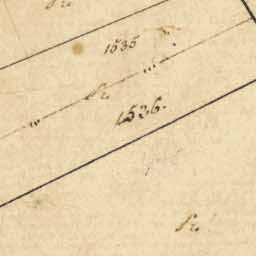 Pr.
1535
Pr.
1536.
Pr.